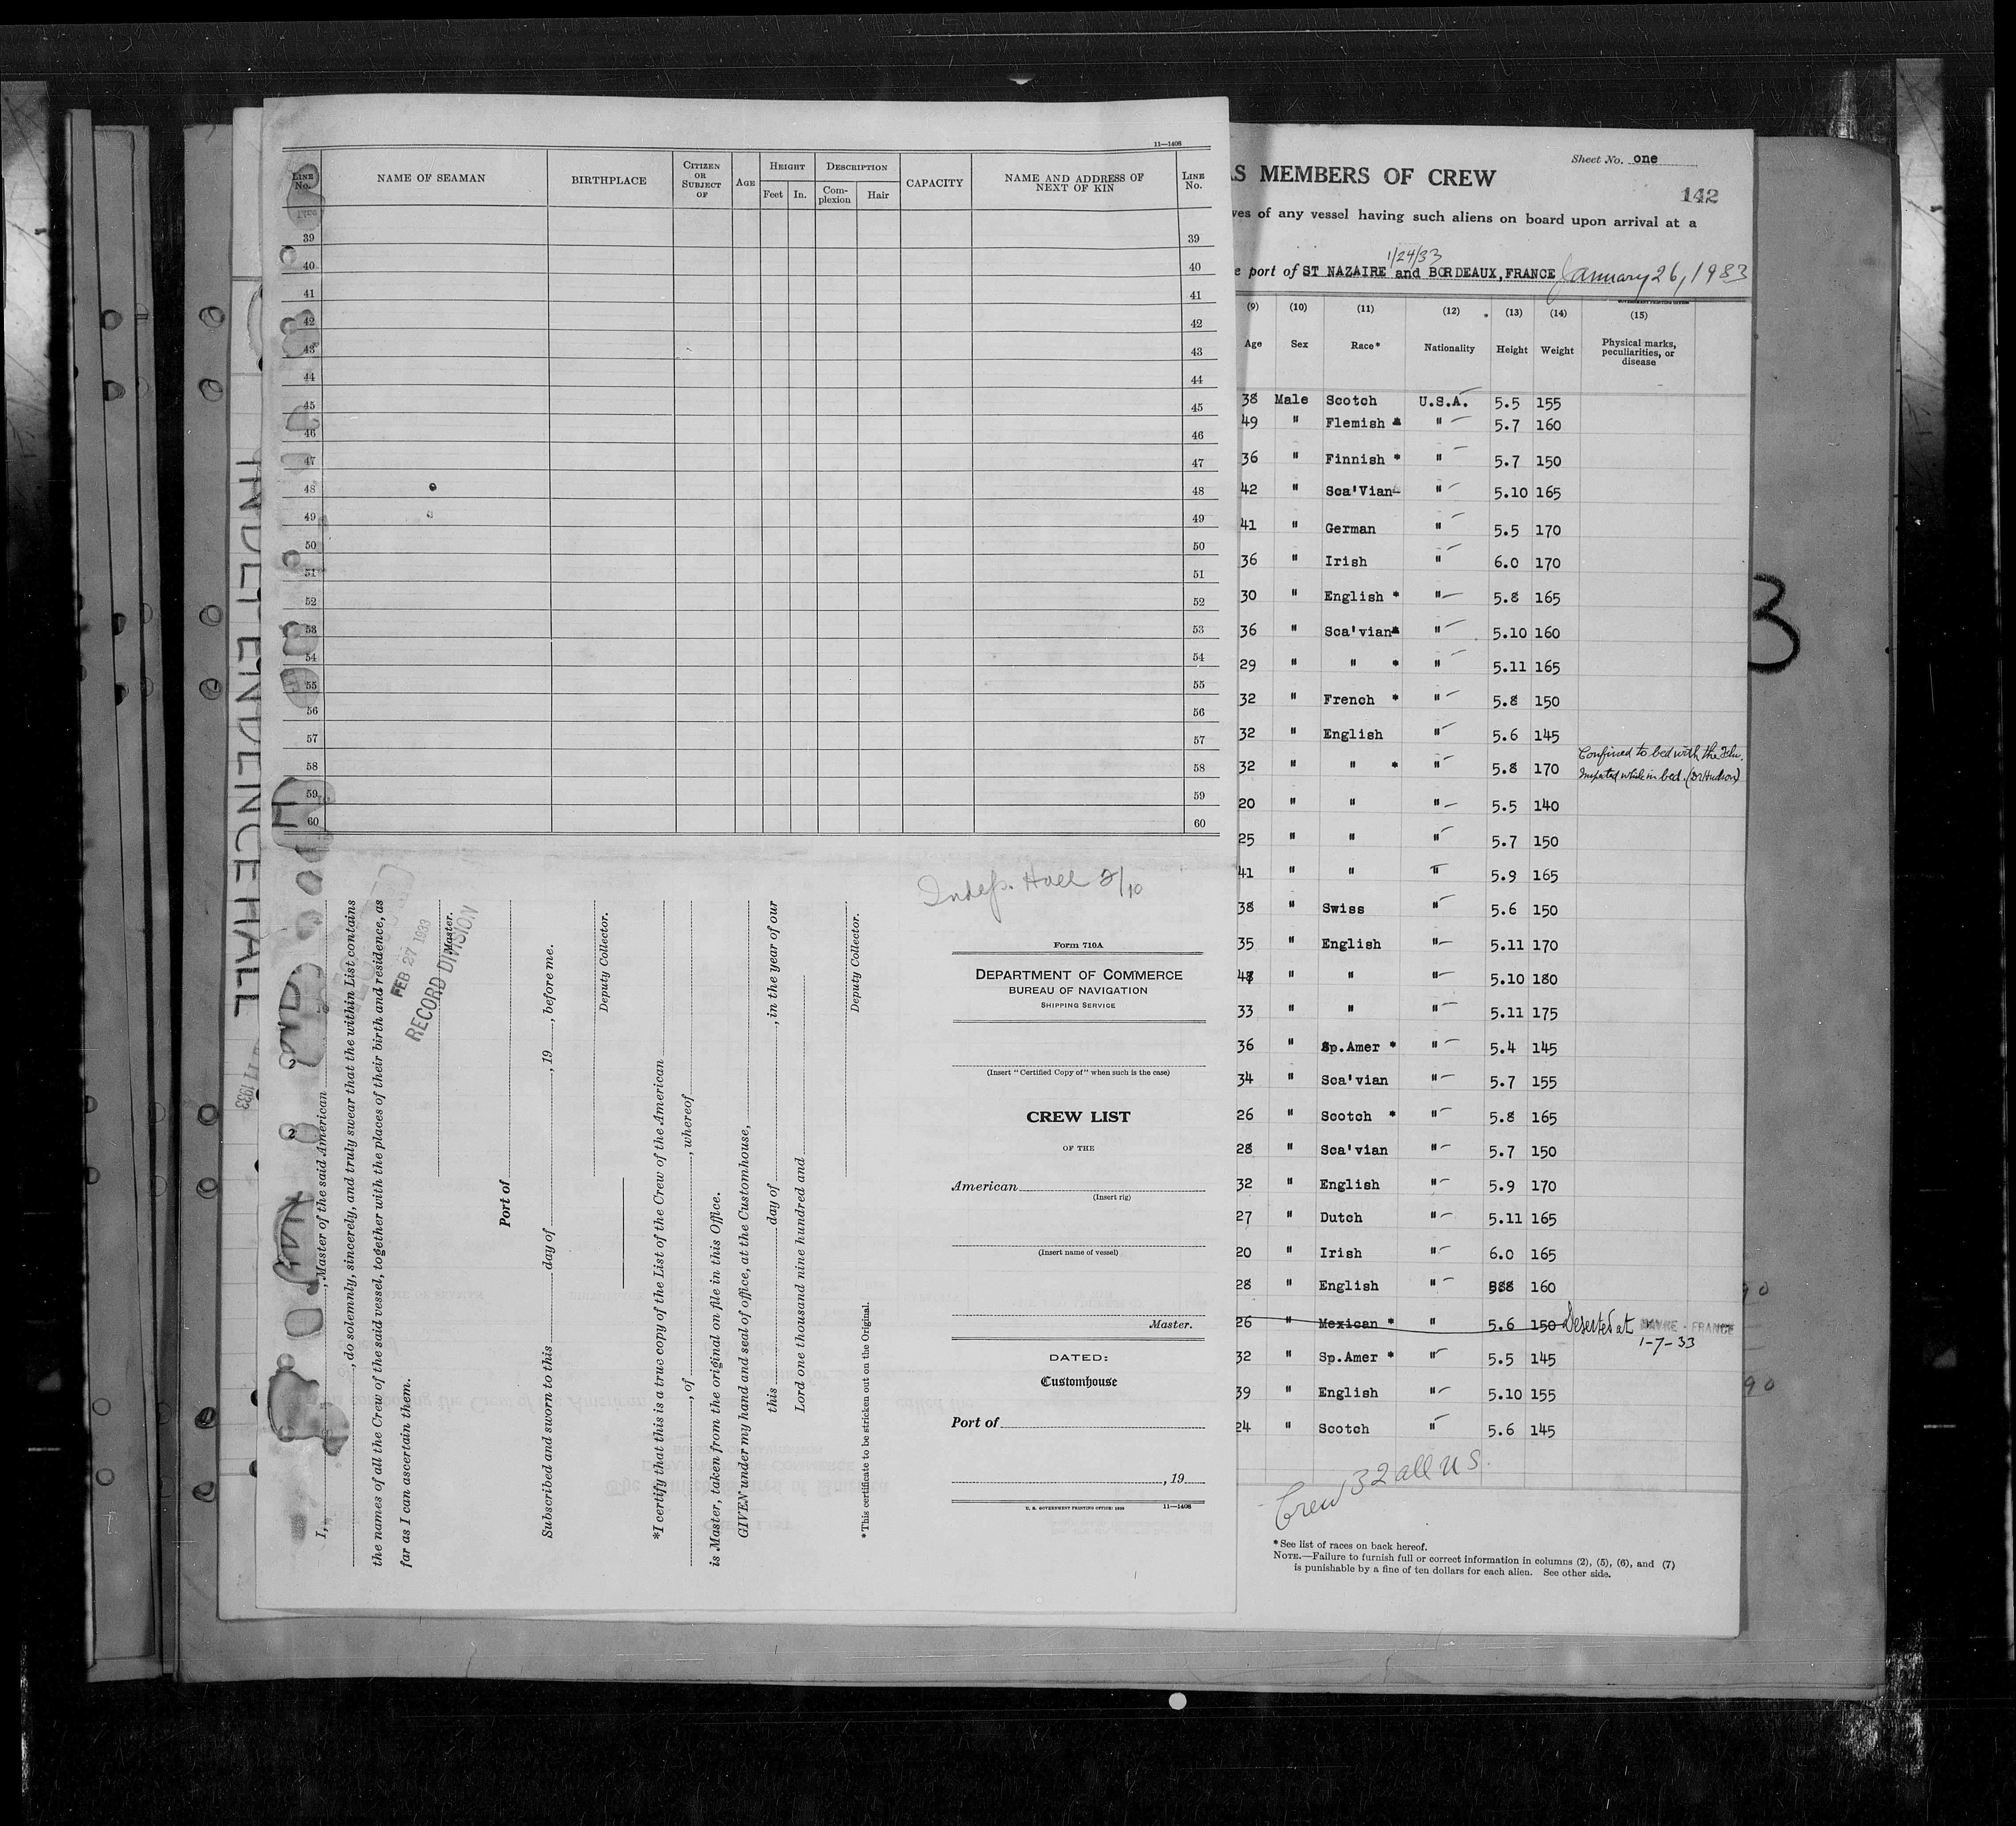 11—1408
LINE No. NAME OF SEAMAN BIRTHPLACE CITIZEN OR SUBJECT OF AGE HEIGHT Feet In. DESCRIPTION Complexion Hair CAPACITY NAME AND ADDRESS OF NEXT OF KIN LINE No.
39 39
40 40
41 41
42 42
43 43
44 44
45 45
46 46
47 47
48 48
49 49
50 50
51 51
52 52
53 53
54 54
55 55
56 56
57 57
58 58
59 59
60 60
INDEPENDENCE HALL
I,
, Master of the said American
, do solemnly, sincerely, and truly swear that the within List contains
the names of all the Crew of the said vessel, together with the places of their birth and residence, as
far as I can ascertain them.
FEB 27 1933
RECORD DIVISION
Master.
Port of
Subscribed and sworn to this day of , 19 , before me.
Deputy Collector.
*I certify that this is a true copy of the List of the Crew of the American
, of , whereof
is Master, taken from the original on file in this Office.
GIVEN under my hand and seal of office, at the Customhouse,
this day of , in the year of our
Lord one thousand nine hundred and
Deputy Collector.
*This certificate to be stricken out on the Original.
Indep. Hall 2/10
Form 710A
DEPARTMENT OF COMMERCE
BUREAU OF NAVIGATION
SHIPPING SERVICE
(Insert "Certified Copy of" when such is the case)
CREW LIST
OF THE
American
(Insert rig)
(Insert name of vessel)
Master.
DATED:
Customhouse
Port of
, 19
U. S. GOVERNMENT PRINTING OFFICE: 1930 11—1408
Sheet No. one
AS MEMBERS OF CREW
142
ves of any vessel having such aliens on board upon arrival at a
1/24/33
e port of ST NAZAIRE and BORDEAUX, FRANCE January 26, 1933
GOVERNMENT PRINTING OFFICE
(9) (10) (11) (12) (13) (14) (15)
Age Sex Race* Nationality Height Weight Physical marks, peculiarities, or disease
38 Male Scotch U.S.A. 5.5 155
49 " Flemish * " 5.7 160
36 " Finnish * " 5.7 150
42 " Sca'Vian " 5.10 165
41 " German " 5.5 170
36 " Irish " 6.0 170
30 " English * " 5.8 165
36 " Sca'vian* " 5.10 160
29 " " * " 5.11 165
32 " French * " 5.8 150
32 " English " 5.6 145
32 " " * " 5.8 170 Confined to bed with the Flu. Inspected while in bed. (Dr Hudson)
20 " " " 5.5 140
25 " " " 5.7 150
41 " " " 5.9 165
38 " Swiss " 5.6 150
35 " English " 5.11 170
48 " " " 5.10 180
33 " " " 5.11 175
36 " Sp.Amer * " 5.4 145
34 " Sca'vian " 5.7 155
26 " Scotch * " 5.8 165
28 " Sca'vian " 5.7 150
32 " English " 5.9 170
27 " Dutch " 5.11 165
20 " Irish " 6.0 165
28 " English " 160
26 " Mexican * " 5.6 150 Deserted at HAVRE - FRANCE 1-7-33
32 " Sp.Amer * " 5.5 145
39 " English " 5.10 155
24 " Scotch " 5.6 145
Crew 32 all U S.
*See list of races on back hereof.
NOTE.—Failure to furnish full or correct information in columns (2), (5), (6), and (7)
is punishable by a fine of ten dollars for each alien. See other side.
3